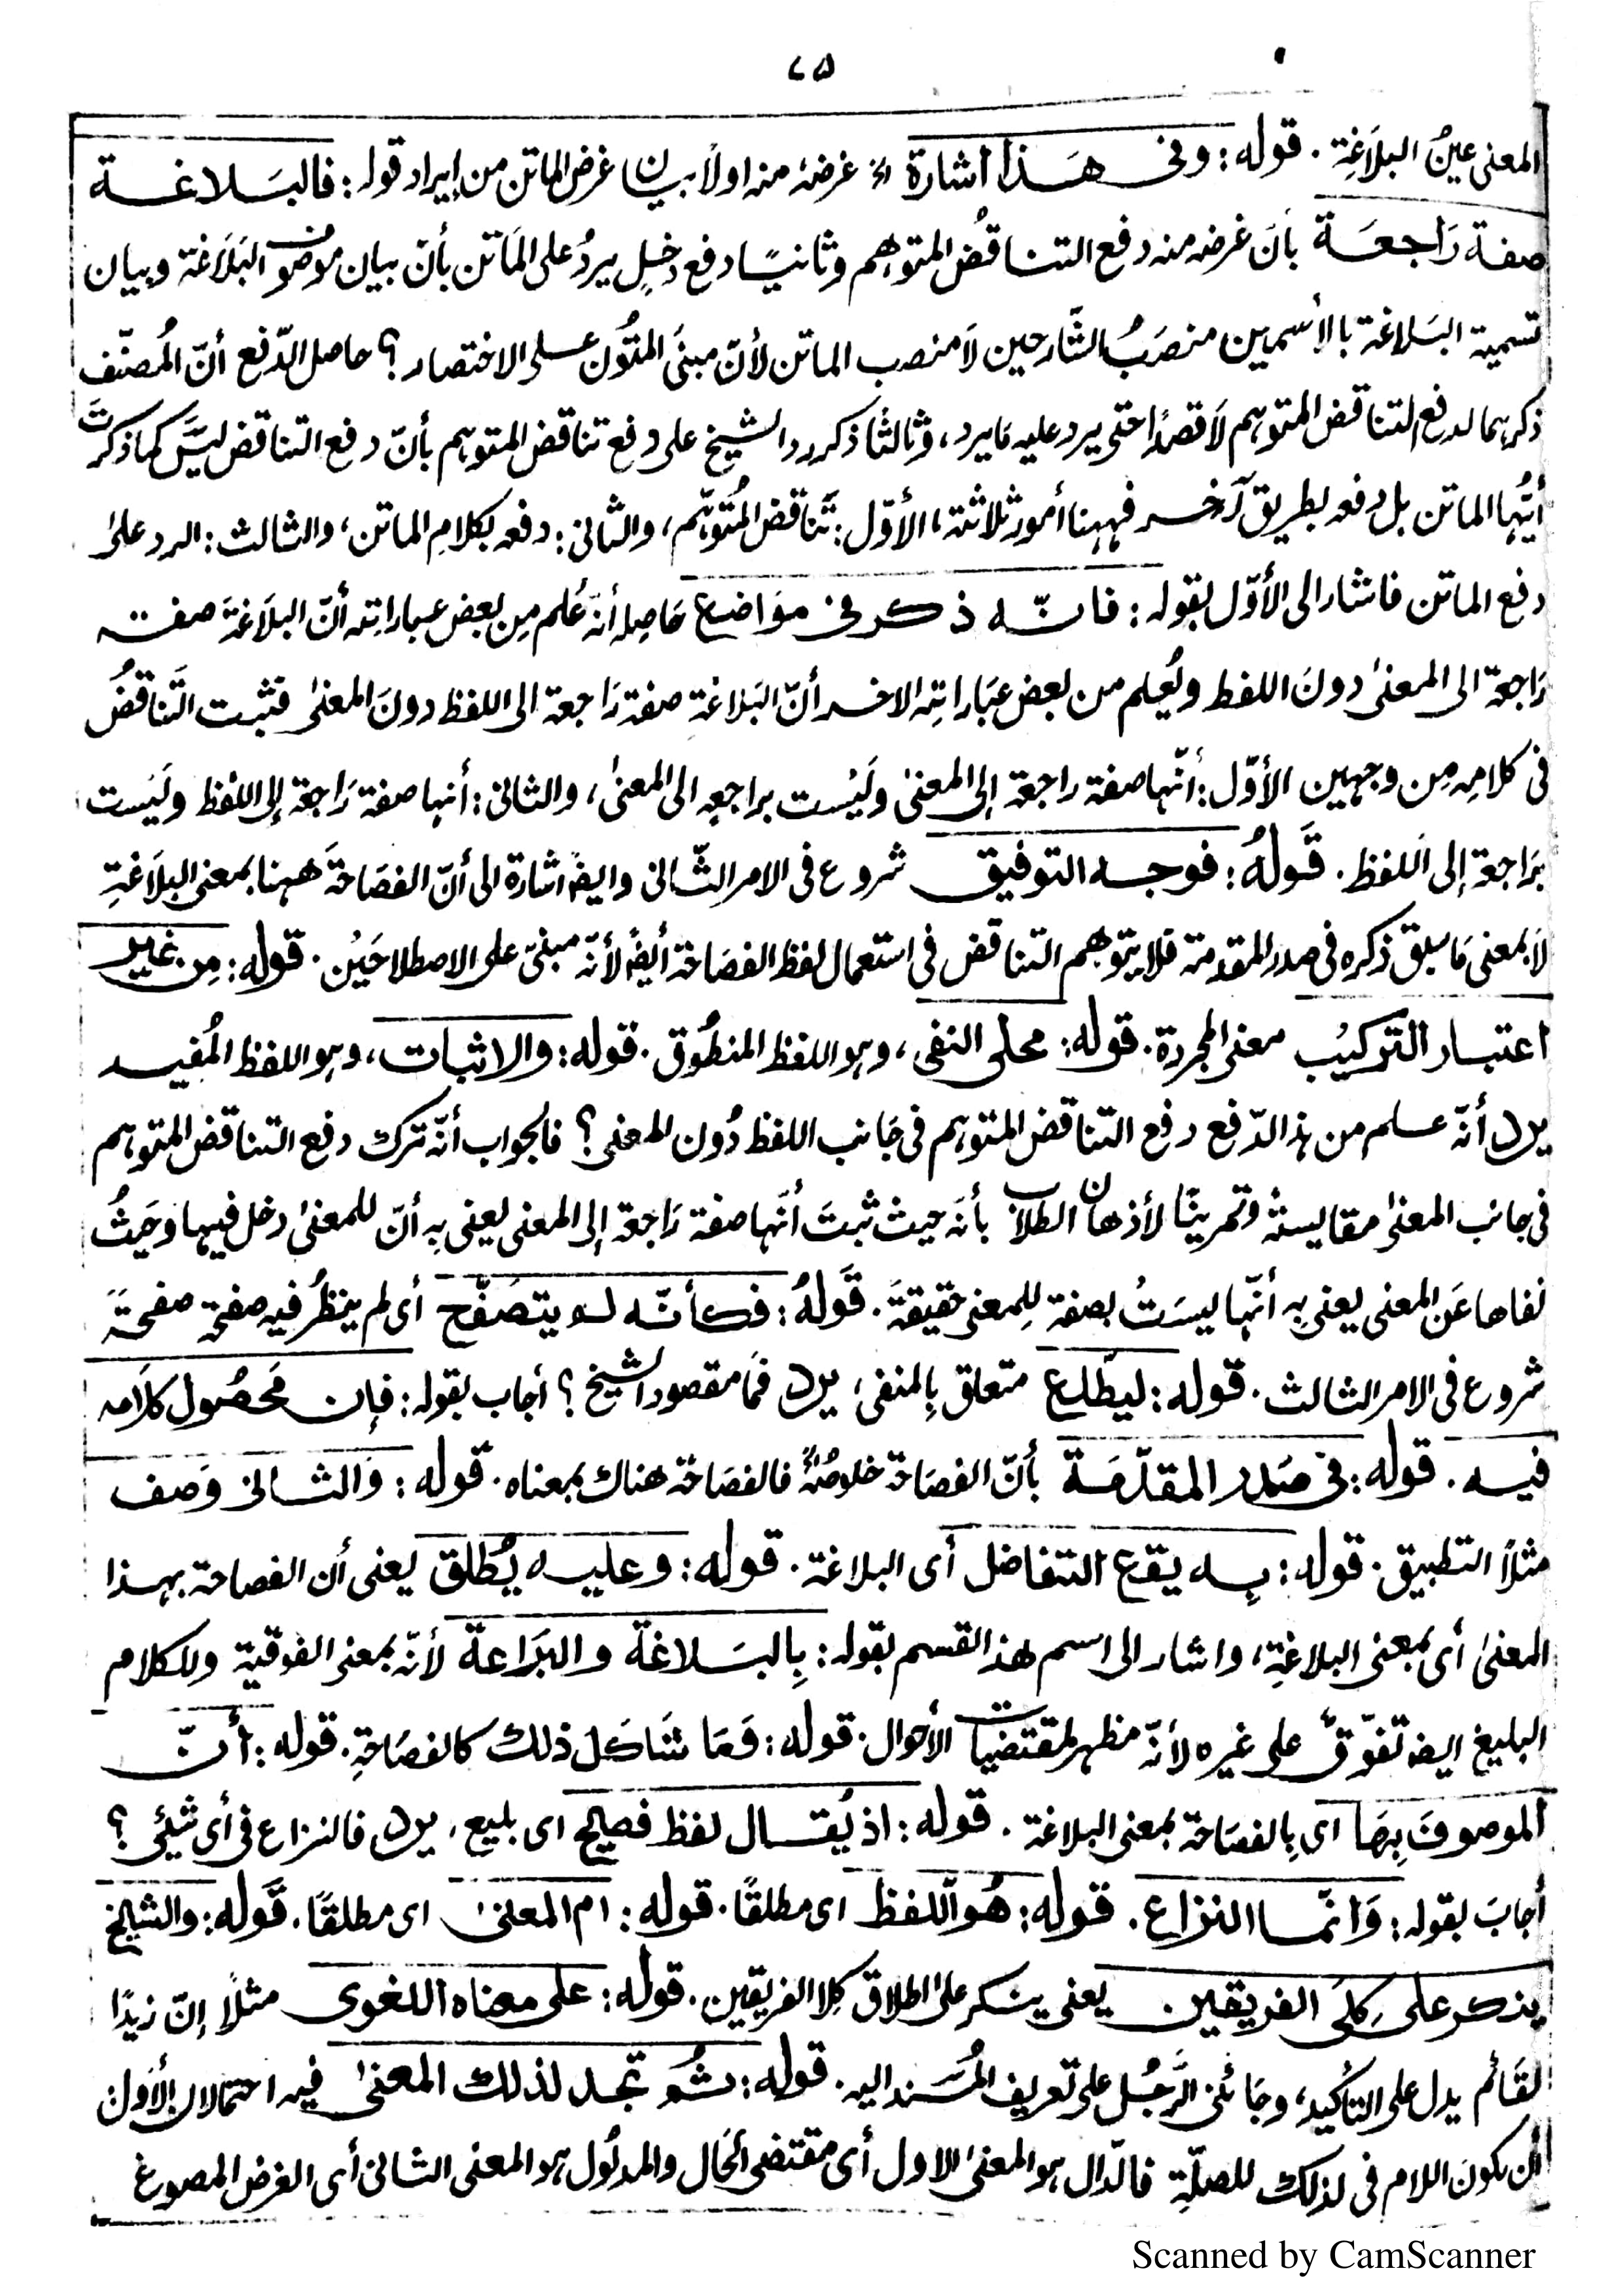 ٧٥
المعنى عينُ البلَاغَةِ . قوله : وفى هَذا اشارة الخ غرضهُ منه اولاً بيان غرض الماتن من إيراد قوله : فالبَلاغة
صفة رَاجعَة بأنَ غرضه منه دفع التناقُض المتوهم وثانيًا دفع دخلٍ يردُ على المَاتن بأنّ بيان موضوف البَلَاغة وبيان
تسمية البَلاغة بالأسمين منصَبُ الشَّارحين لَا منصب الماتن لأنّ مبنَى المتُون على الاختصار ؟ حاصل الدّفع أنّ المُصنّف
ذكرهما لدفع التناقض المتوهم لَا قصدًا حتى يرد عليه مَا يرد ، وثالثًا ذكر رد الشيخ على دفع تناقض المتوهم بأنّ دفع التناقض ليسَ كما ذكرتَ
أيُّها الماتن بل دفعه بطريق آخر فههنا أمور ثلاثة ، الأوّل : تَناقض المُتَوهّم ، والثانى : دفعه بكلامِ الماتن ، والثالث : الرد علىٰ
دفع الماتن فاشار الى الأوّل بقوله : فانّه ذكر فى موَاضع حَاصِله أنّه عُلم مِن بعض عباراتِه أنّ البلَاغةَ صفة
رَاجعة الى المعنىٰ دونَ اللفظ ويُعلم من بعض عبَاراتِه الاخر أنّ البَلاغة صفة رَاجعة الى اللفظ دونَ المعنىٰ فثبت التَّناقضُ
فى كلامِه مِن وجهين الأوّل : أنّها صفة راجعة إلى المعنىٰ ولَيْست براجعةٍ الى المعنىٰ ، والثانى : أنها صفة رَاجعة إلى اللفظ ولَيْست
برَاجعة إلى اللفظ . قَولهُ : فوجه التوفيق شروع فى الامر الثّانى وايضًا اشارة الى أنّ الفصَاحَةَ ههنا بمعنى البلَاغَةِ
لَا بمعنى مَا سبق ذكره فى صدر المقدمة فلا يتوهم التناقض فى استعمال لفظ الفصَاحَة أيضًا لأنّه مبنىّ على الاصطلاحَيْن . قوله : مِن غير
اعتبار التركيْب معنى المجردة . قوله : محلى النفى ، وهو اللفظ المنطُوق . قوله : والاثبات ، وهو اللفظ المُفيد
يرد أنّه علم من هذ الدّفع دفع التناقض المتوهم فى جَانب اللفظ دُون المعنى ؟ فالجواب أنّه ترك دفع التناقض المتوهم
فى جانب المعنىٰ مقايسةً وتمرينًا لأذهان الطلاب بأنه حيث ثبتَ أنَّها صفة رَاجعة إلى المعنى يعنى بِه أنّ للمعنىٰ دخل فيها وحَيثُ
نفاها عَن المعنى يعنى بِه أنّها ليسَتُ بصفة لِلمعنى حقيقةَ . قَولهُ : فكأنّه لم يتصَفّح أى لم ينظُر فيه صفحة صفحة
شروع فى الامر الثالث . قوله : ليطّلع متعلق بِالمنفى ، يرد فمَا مقصود الشيخ ؟ أجاب بقوله : فإن مَحصُول كلَامه
فيه . قوله : فى صَدر المقدّمَة بأنّ الفصَاحَة خلوصُهُ فالفصَاحَة هناك بمعناه . قوله : وَالثانى وَصف
مثلًا التطبيق . قوله : بِه يقع التفاضل أى البلاغة . قوله : وعليه يُطلق يعنى أن الفصاحة بهذا
المعنىٰ أى بمعنى البلاغَةِ ، واشار الى اسم هذ القسم بقوله : بِالبَلاغة والبَرَاعة لأنّه بمعنى الفوقية وللكلام
البليغ ايضًا تفوّقٌ على غيره لأنّه مظهر لمقتضيات الأحوال . قوله : وَمَا شَاكَل ذلك كالفصَاحَةِ . قوله : أنّ
الموصوفَ بِهَا اى بِالفصَاحَة بمعنى البلاغة . قوله : اذ يُقال لفظ فصيح اى بليغ ، يرد فالنزاع فى أى شئٍ ؟
أجابَ بقوله : وَانّما النزاع . قوله : هُو اللفظ اى مطلقًا . قوله : ام المعنىٰ اى مطلقًا . قَوله : والشيخ
ينكر على كِلَى الفريقين . يعنى ينكر على اطلاق كِلا الفريقين . قوله : على معناه اللغوى مثلًا إنّ زيدًا
لقَائم يدل على التأكيد ، وجَائنى الرَّجُل على تعريف المُسَند اليه . قوله : ثمُ تجد لذلك المعنىٰ فيه احتمالان الأول
أن يكون اللام فى لذلك للصلّةِ فالدّال هو المعنىٰ الاول أى مقتضى الحَال والمدلُول هو المعنى الثانى أى الغرض المصوغ
Scanned by CamScanner